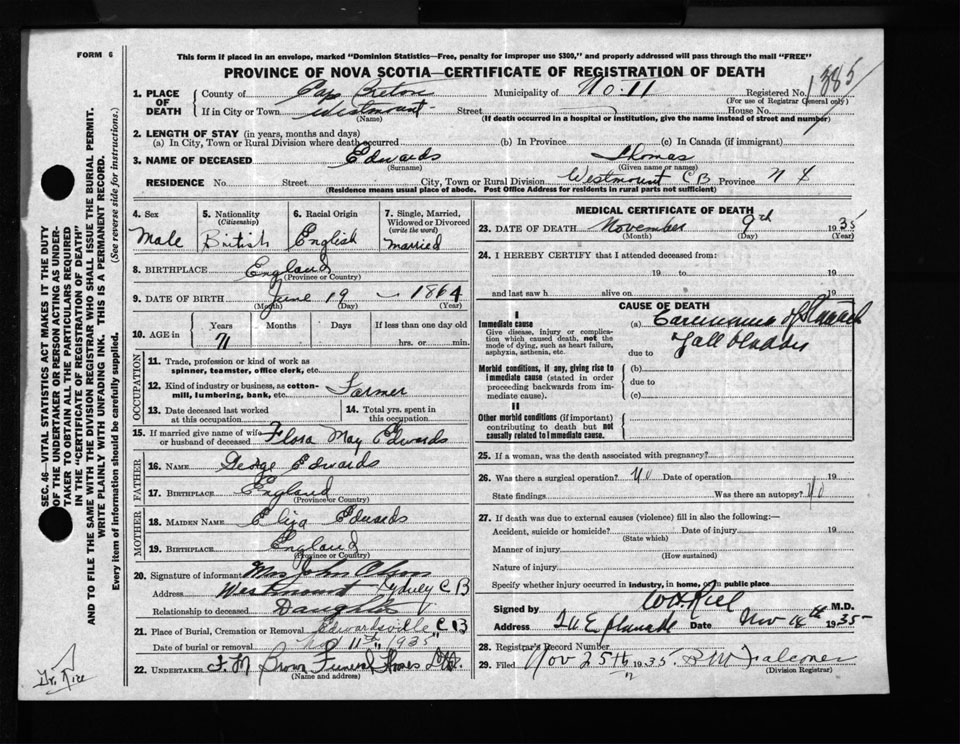 FORM 6
This form if placed in an envelope, marked "Dominion Statistics—Free, penalty for improper use $300," and properly addressed will pass through the mail "FREE"
PROVINCE OF NOVA SCOTIA—CERTIFICATE OF REGISTRATION OF DEATH
1385
1. PLACE OF DEATH County of Cape Breton Municipality of No. 11 Registered No.
(For use of Registrar General only)
If in City or Town Westmount Street House No.
(Name) (If death occurred in a hospital or institution, give the name instead of street and number)
2. LENGTH OF STAY (in years, months and days)
(a) In City, Town or Rural Division where death occurred (b) In Province (c) In Canada (if immigrant)
3. NAME OF DECEASED Edwards Thomas
(Surname) (Given name or names)
RESIDENCE No. Street City, Town or Rural Division Westmount C B Province N S
(Residence means usual place of abode. Post Office Address for residents in rural parts not sufficient)
SEC. 46—VITAL STATISTICS ACT MAKES IT THE DUTY
OF THE UNDERTAKER OR PERSON ACTING AS UNDER-
TAKER TO OBTAIN ALL THE PARTICULARS REQUIRED
IN THE "CERTIFICATE OF REGISTRATION OF DEATH"
AND TO FILE THE SAME WITH THE DIVISION REGISTRAR WHO SHALL ISSUE THE BURIAL PERMIT.
WRITE PLAINLY WITH UNFADING INK. THIS IS A PERMANENT RECORD.
Every item of information should be carefully supplied. (See reverse side for instructions.)
4. Sex
Male
5. Nationality
(Citizenship)
British
6. Racial Origin
English
7. Single, Married,
Widowed or Divorced
(write the word)
married
8. BIRTHPLACE England
(Province or Country)
9. DATE OF BIRTH June 19 1864
(Month) (Day) (Year)
10. AGE in Years Months Days If less than one day old
71 hrs. or min.
OCCUPATION
11. Trade, profession or kind of work as
spinner, teamster, office clerk, etc.
12. Kind of industry or business, as cotton-
mill, lumbering, bank, etc. Farmer
13. Date deceased last worked
at this occupation
14. Total yrs. spent in
this occupation
15. If married give name of wife
or husband of deceased Flora May Edwards
FATHER
16. NAME George Edwards
17. BIRTHPLACE England
(Province or Country)
MOTHER
18. MAIDEN NAME Eliza Edwards
19. BIRTHPLACE England
(Province or Country)
20. Signature of informant Mrs John Olson
Address Westmount Sydney C B
Relationship to deceased Daughter
21. Place of Burial, Cremation or Removal Edwardsville C B
Date of burial or removal Nov 11th 1935
22. UNDERTAKER F. M Brown Funeral Homes Ltd.
(Name and address)
MEDICAL CERTIFICATE OF DEATH
23. DATE OF DEATH November 9th 1935
(Month) (Day) (Year)
24. I HEREBY CERTIFY that I attended deceased from:
19 to 19
and last saw h alive on 19
CAUSE OF DEATH
I
Immediate cause
Give disease, injury or complica-
tion which caused death, not the
mode of dying, such as heart failure,
asphyxia, asthenia, etc.
(a) Carcinoma of Stomach
Gall bladder
due to
Morbid conditions, if any, giving rise to
immediate cause (stated in order
proceeding backwards from im-
mediate cause).
(b)
due to
(c)
II
Other morbid conditions (if important)
contributing to death but not
causally related to immediate cause.
25. If a woman, was the death associated with pregnancy?
26. Was there a surgical operation? No Date of operation 19
State findings Was there an autopsy? No
27. If death was due to external causes (violence) fill in also the following:—
Accident, suicide or homicide? Date of injury 19
(State which)
Manner of injury
(How sustained)
Nature of injury
Specify whether injury occurred in industry, in home, or in public place
Signed by M.D.
Address Esplanade Date Nov 14th 1935
28. Registrar's Record Number
29. Filed Nov 25th 1935. Falconer
(Division Registrar)
Dr. Rice